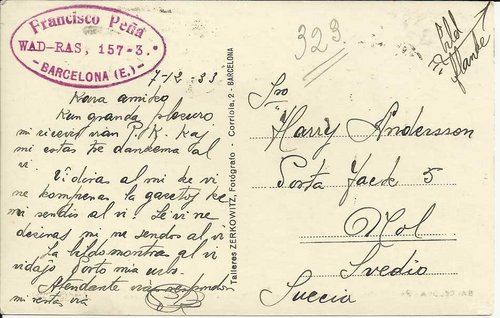 Francisco Peña
WAD-RAS, 157-3.º
- BARCELONA (E.) -
7-12-33
Kara amiko
Kun granda plezuro
mi ricevis vian P. K. Kaj
mi estas tre dankema al
vi.
Vi diras al mi ke vi
ne komprenas la gacetoj ke
mi sendis al vi. Se vi ne
deziras mi ne sendos al vi
La bildo montras al vi
vidajo porto mia urbo.
Atendante vian respondon
mi restas via
Talleres ZERKOWITZ, Fotógrafo - Corriola, 2 - BARCELONA
323
Sro
Harry Andersson
Posta Jack 5
Mol
Svedio
Suecia